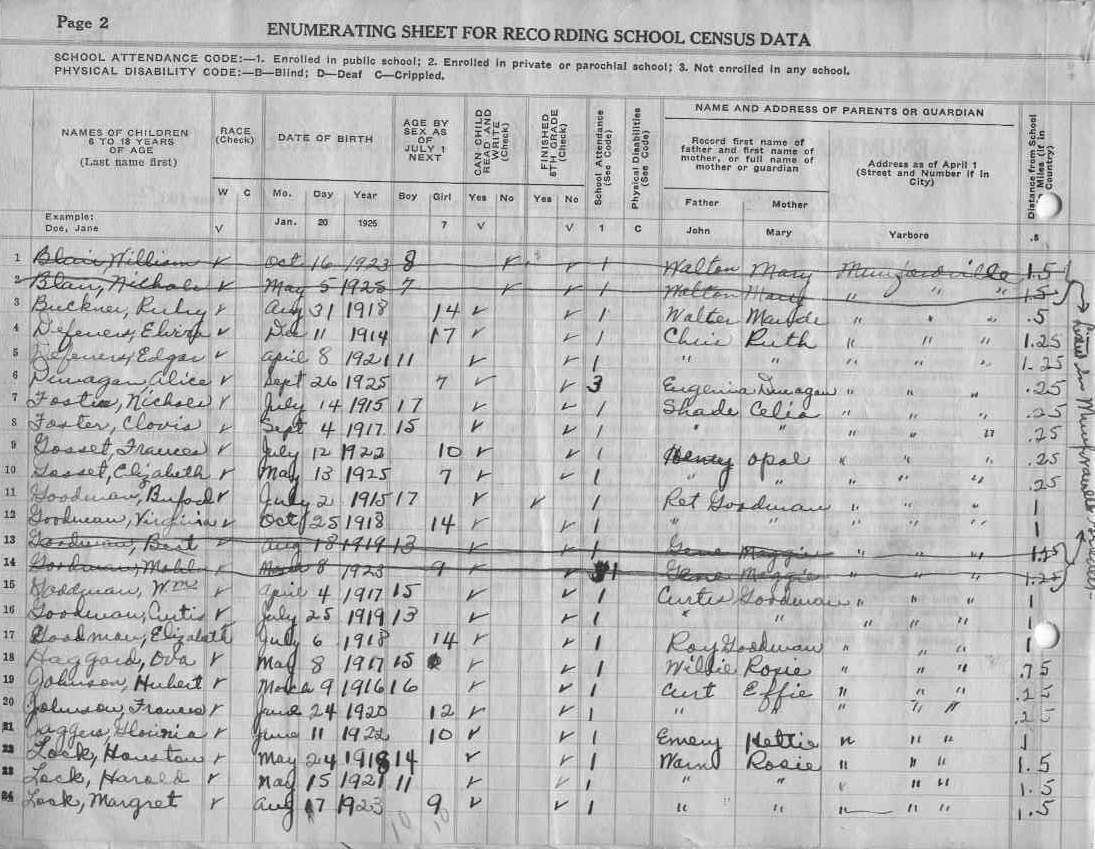 Page 2
ENUMERATING SHEET FOR RECORDING SCHOOL CENSUS DATA
SCHOOL ATTENDANCE CODE:—1. Enrolled in public school; 2. Enrolled in private or parochial school; 3. Not enrolled in any school.
PHYSICAL DISABILITY CODE:—B—Blind; D—Deaf C—Crippled.
NAMES OF CHILDREN 6 TO 18 YEARS OF AGE (Last name first)
RACE (Check)
W C
DATE OF BIRTH
Mo. Day Year
AGE BY SEX AS OF JULY 1 NEXT
Boy Girl
CAN CHILD READ AND WRITE (Check)
Yes No
FINISHED 8TH GRADE (Check)
Yes No
School Attendance (See Code)
Physical Disabilities (See Code)
NAME AND ADDRESS OF PARENTS OR GUARDIAN
Record first name of father and first name of mother, or full name of mother or guardian
Father Mother
Address as of April 1 (Street and Number if in City)
Distance from School Miles (if in Country)
Example: Doe, Jane V Jan. 20 1925 7 V V 1 C John Mary Yarboro .8
1 Blair, William ✓ Oct 16 1923 8 ✓ ✓ 1 Walton Mary Munfordville 1.5
2 Blair, Nichols ✓ May 5 1925 7 ✓ ✓ 1 Walton Mary " " " 1.5
3 Buckner, Ruby ✓ Aug 31 1918 14 ✓ ✓ 1 Walter Maude " " " .5
4 Elvira ✓ Dec 11 1914 17 ✓ ✓ 1 Ruth " " " 1.25
5 Edgar ✓ April 8 1921 11 ✓ ✓ 1 " " " " " 1.25
6 Alice ✓ Sept 26 1925 7 ✓ ✓ 3 Eugenia " " " .25
7 Foster, Nichols ✓ July 14 1915 17 ✓ ✓ 1 Shade Celia " " " .25
8 Foster, Clovis ✓ Sept 4 1917 15 ✓ ✓ 1 " " " " " .25
9 Gosset, Frances ✓ July 12 1922 10 ✓ ✓ 1 Henry Opal " " " .25
10 Gosset, Elizabeth ✓ May 13 1925 7 ✓ ✓ 1 " " " " " .25
11 Goodman, Buford ✓ July 2 1915 17 ✓ ✓ 1 Ret Goodman " " " 1
12 Goodman, Virginia ✓ Oct 25 1918 14 ✓ ✓ 1 " " " " " 1
13 Goodman, Bert ✓ Aug 18 1919 13 ✓ ✓ 1 Gene Maggie " " " 1.25
14 Goodman, ✓ March 8 1923 9 ✓ ✓ 1 Gene Maggie " " " 1.25
15 Goodman, Wm ✓ April 4 1917 15 ✓ ✓ 1 Curtis Goodman " " " 1
16 Goodman, Curtis ✓ July 25 1919 13 ✓ ✓ 1 " " " " " 1
17 Goodman, Elizabeth ✓ July 6 1918 14 ✓ ✓ 1 Roy Goodman " " " 1
18 Haggard, Ova ✓ May 8 1917 15 ✓ ✓ 1 Willie Rosie " " " .75
19 Johnson, Hubert ✓ March 9 1916 16 ✓ ✓ 1 Curt Effie " " " .25
20 Johnson, Frances ✓ June 24 1920 12 ✓ ✓ 1 " " " " " .25
21 Jaggers, ✓ June 11 1922 10 ✓ ✓ 1 Emery Hettie " " " 1
22 Lock, Houston ✓ May 24 1918 14 ✓ ✓ 1 Rosie " " " 1.5
23 Lock, Harold ✓ May 15 1921 11 ✓ ✓ 1 " " " " " 1.5
24 Lock, Margret ✓ Aug 17 1923 9 ✓ ✓ 1 " " " " " 1.5
10 10